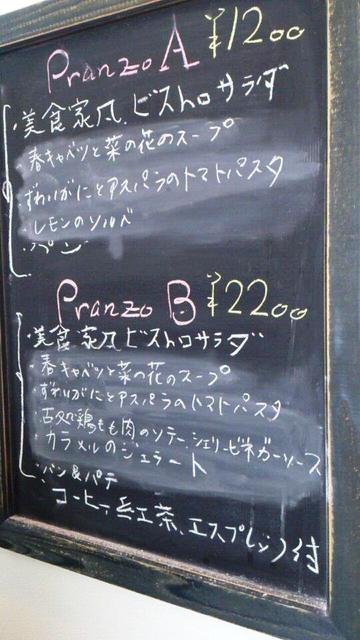 Pranzo A ¥1200
・美食家風ビストロサラダ
・春キャベツと菜の花のスープ
・ずわいがにとアスパラのトマトパスタ
・レモンのソルベ
・パン
Pranzo B ¥2200
・美食家風ビストロサラダ
・春キャベツと菜の花のスープ
・ずわいがにとアスパラのトマトパスタ
・古処鶏もも肉のソテーシェリービネガーソース
・カラメルのジェラート
・パン&パテ
コーヒー、紅茶、エスプレッソ付